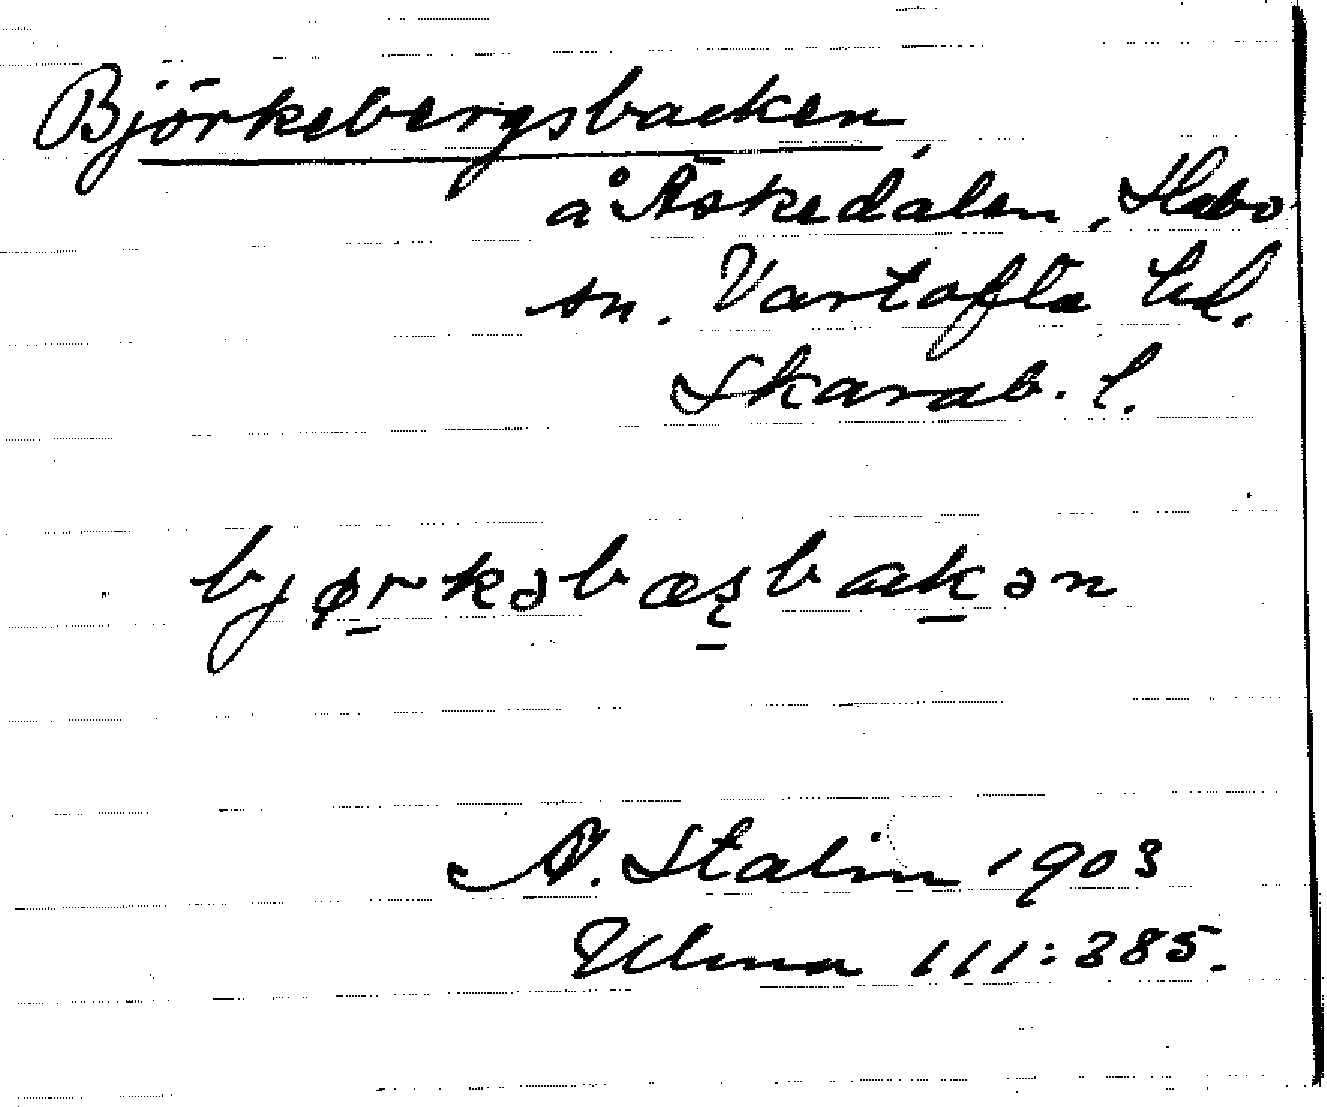 Björkebergsbacken
å Åskedalen, Habo
sn. Vartofta hd.
Skarab. l.
bjørkəbæsbakən
A. Stalin 1903
Ulma 111:385.